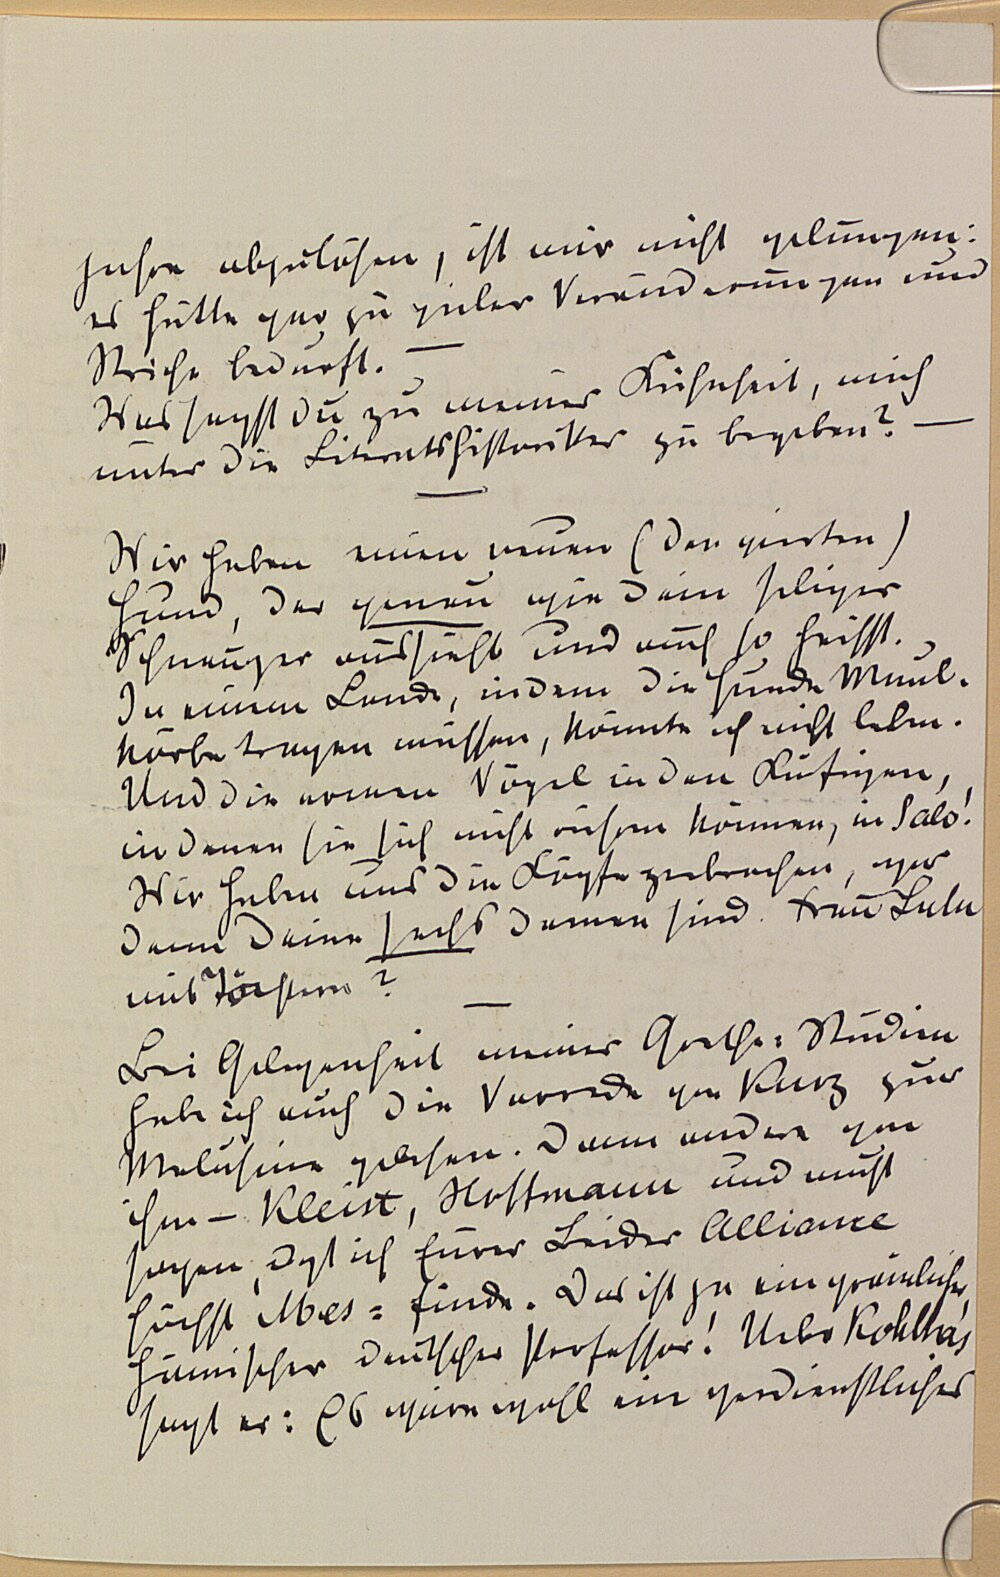 Jahre abzulösen, ist mir nicht gelungen:
es hätte gar zu vieler Veränderungen und
Striche bedurft. —
Was sagst Du zu meiner Kühnheit, mich
unter die Literatshistoriker zu begeben? —
—
Wir haben einen neuen (den vierten)
Hund, der genau wie Dein seliger
Schnauzer aussieht und auch so heisst.
In einem Lande, in dem die Hunde Maul-
körbe tragen müssen, könnte ich nicht leben.
Und die armen Vögel in den Käfigen,
in denen sie sich nicht rühren können, in Salo!
Wir haben uns die Köpfe zerbrochen, wer
denn Deine sechs Damen sind. Frau Lulu
mit Töchtern?
—
Bei Gelegenheit meiner Goethe-Studien
hab ich auch die Vorrede von Kurz zur
Melusine gelesen. Dann andere von
ihm – Kleist, Hoffmann und muß
sagen, daß ich Eurer Beider Alliance
höchst Mes = finde. Das ist ja ein gräulicher
hämischer deutscher Professor! Ueber Kohlhas
sagt er: Es wäre wohl ein verdienstliches